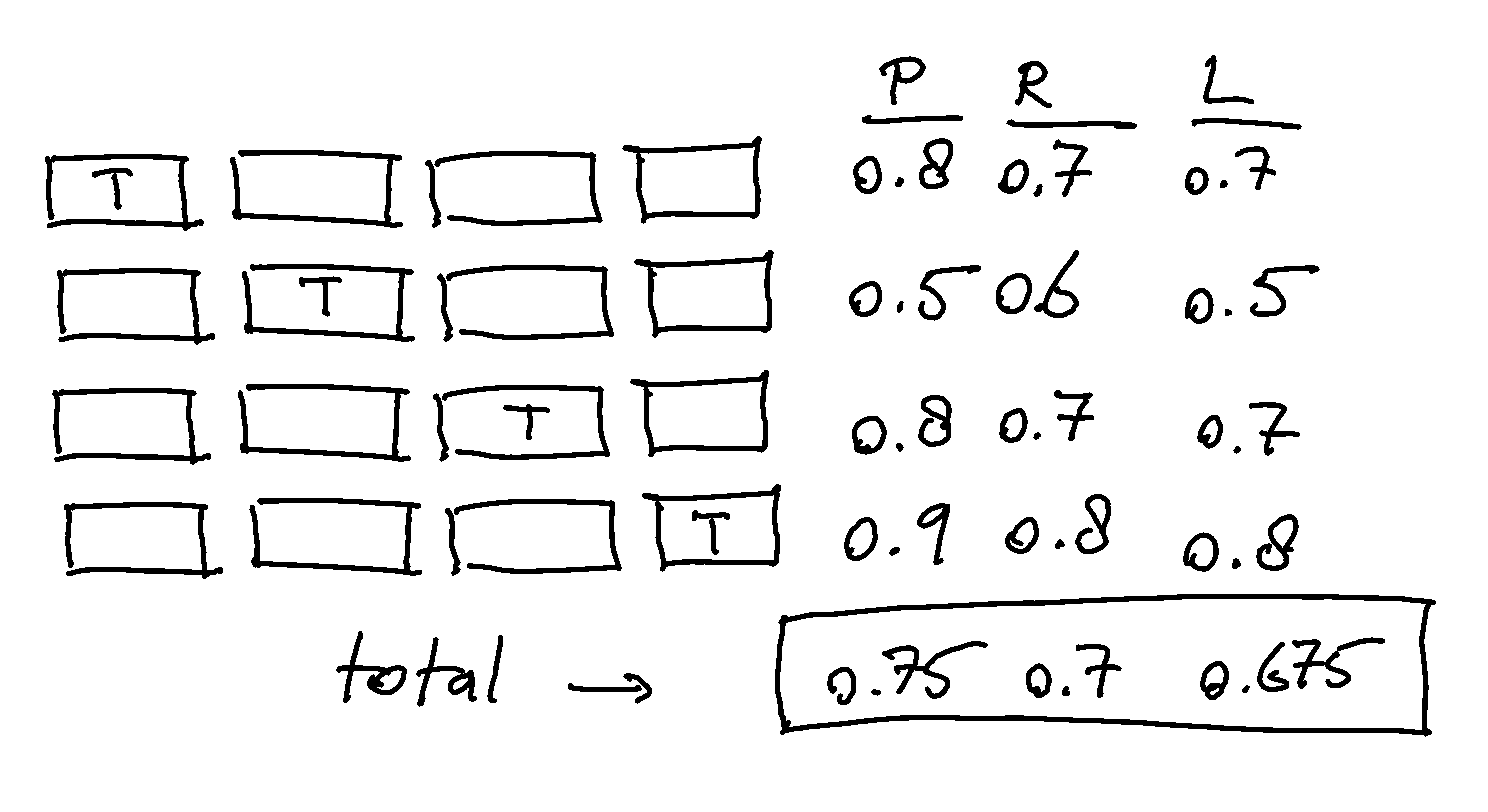 P R L
T 0.8 0.7 0.7
T 0.5 0.6 0.5
T 0.8 0.7 0.7
T 0.9 0.8 0.8
total → 0.75 0.7 0.675